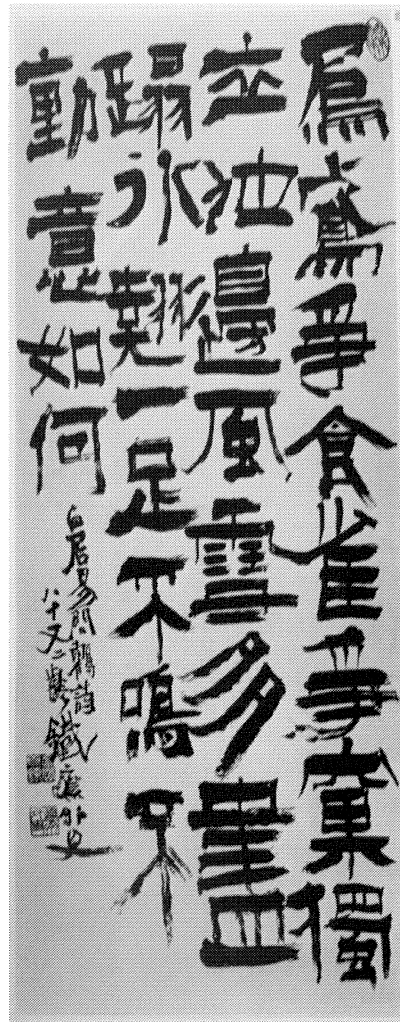 烏鳶爭食雀爭窠獨
立池邊風雪多盡
蹋冰翹一足不鳴不
動意如何
白居易問鶴詩
八十又二 鐵